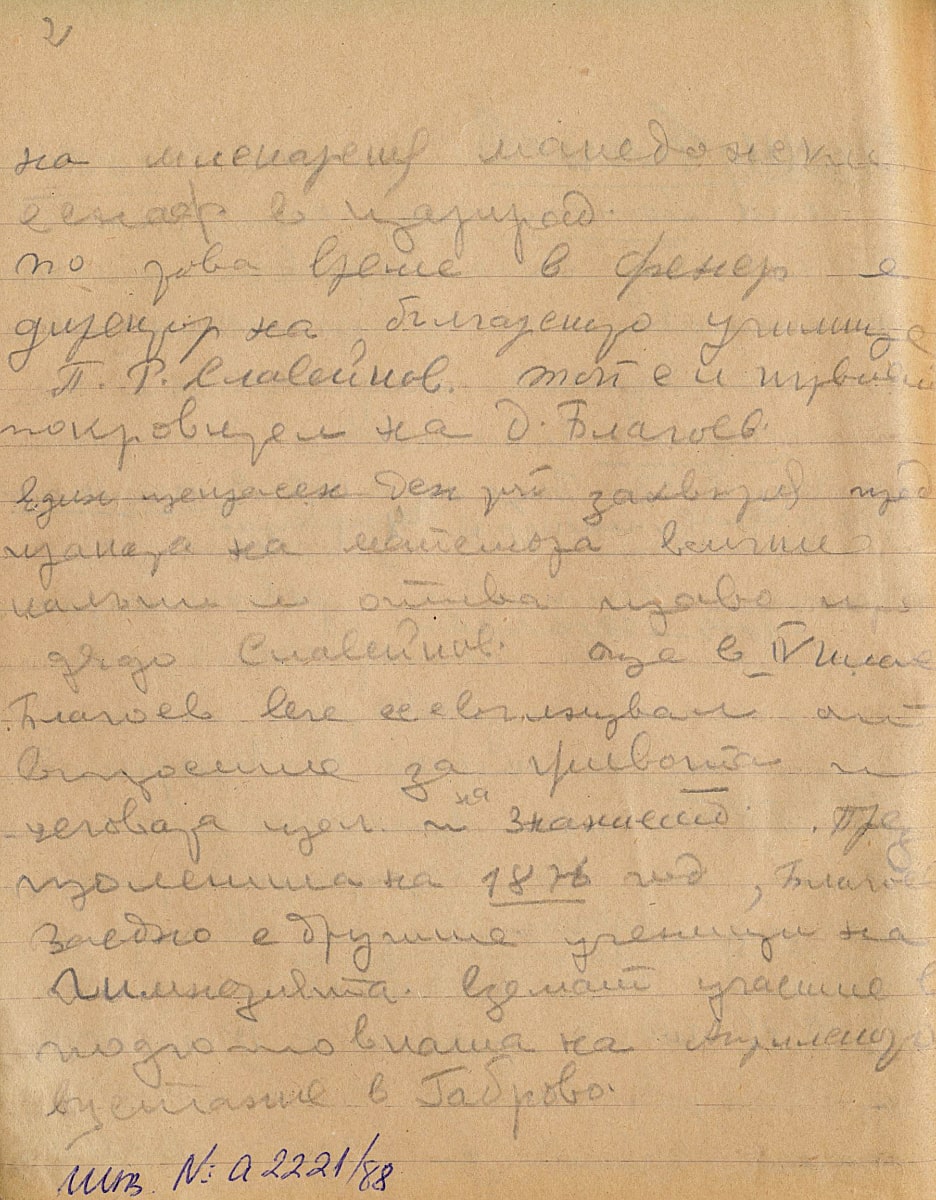 2
на млекарския македонски
еснаф в Цариград.
По това време в Фенер е
директор на българското училище
П. Р. Славейков. Той е и първия
покровител на Д. Благоев.
Един прекрасен ден той захвърля пред
вратата на
калъпи и отива право при
дядо Славейков. Още в IV клас
Благоев вече се е вълнувал от
въпросите за живота и
неговата цел и на знанието. През
пролетта на 1876 год, Благоев
заедно с другите ученици на
Гимназията. Вземат участие в
подготовката на Априлското
въстание в Габрово.
инв. №: А 2221/88